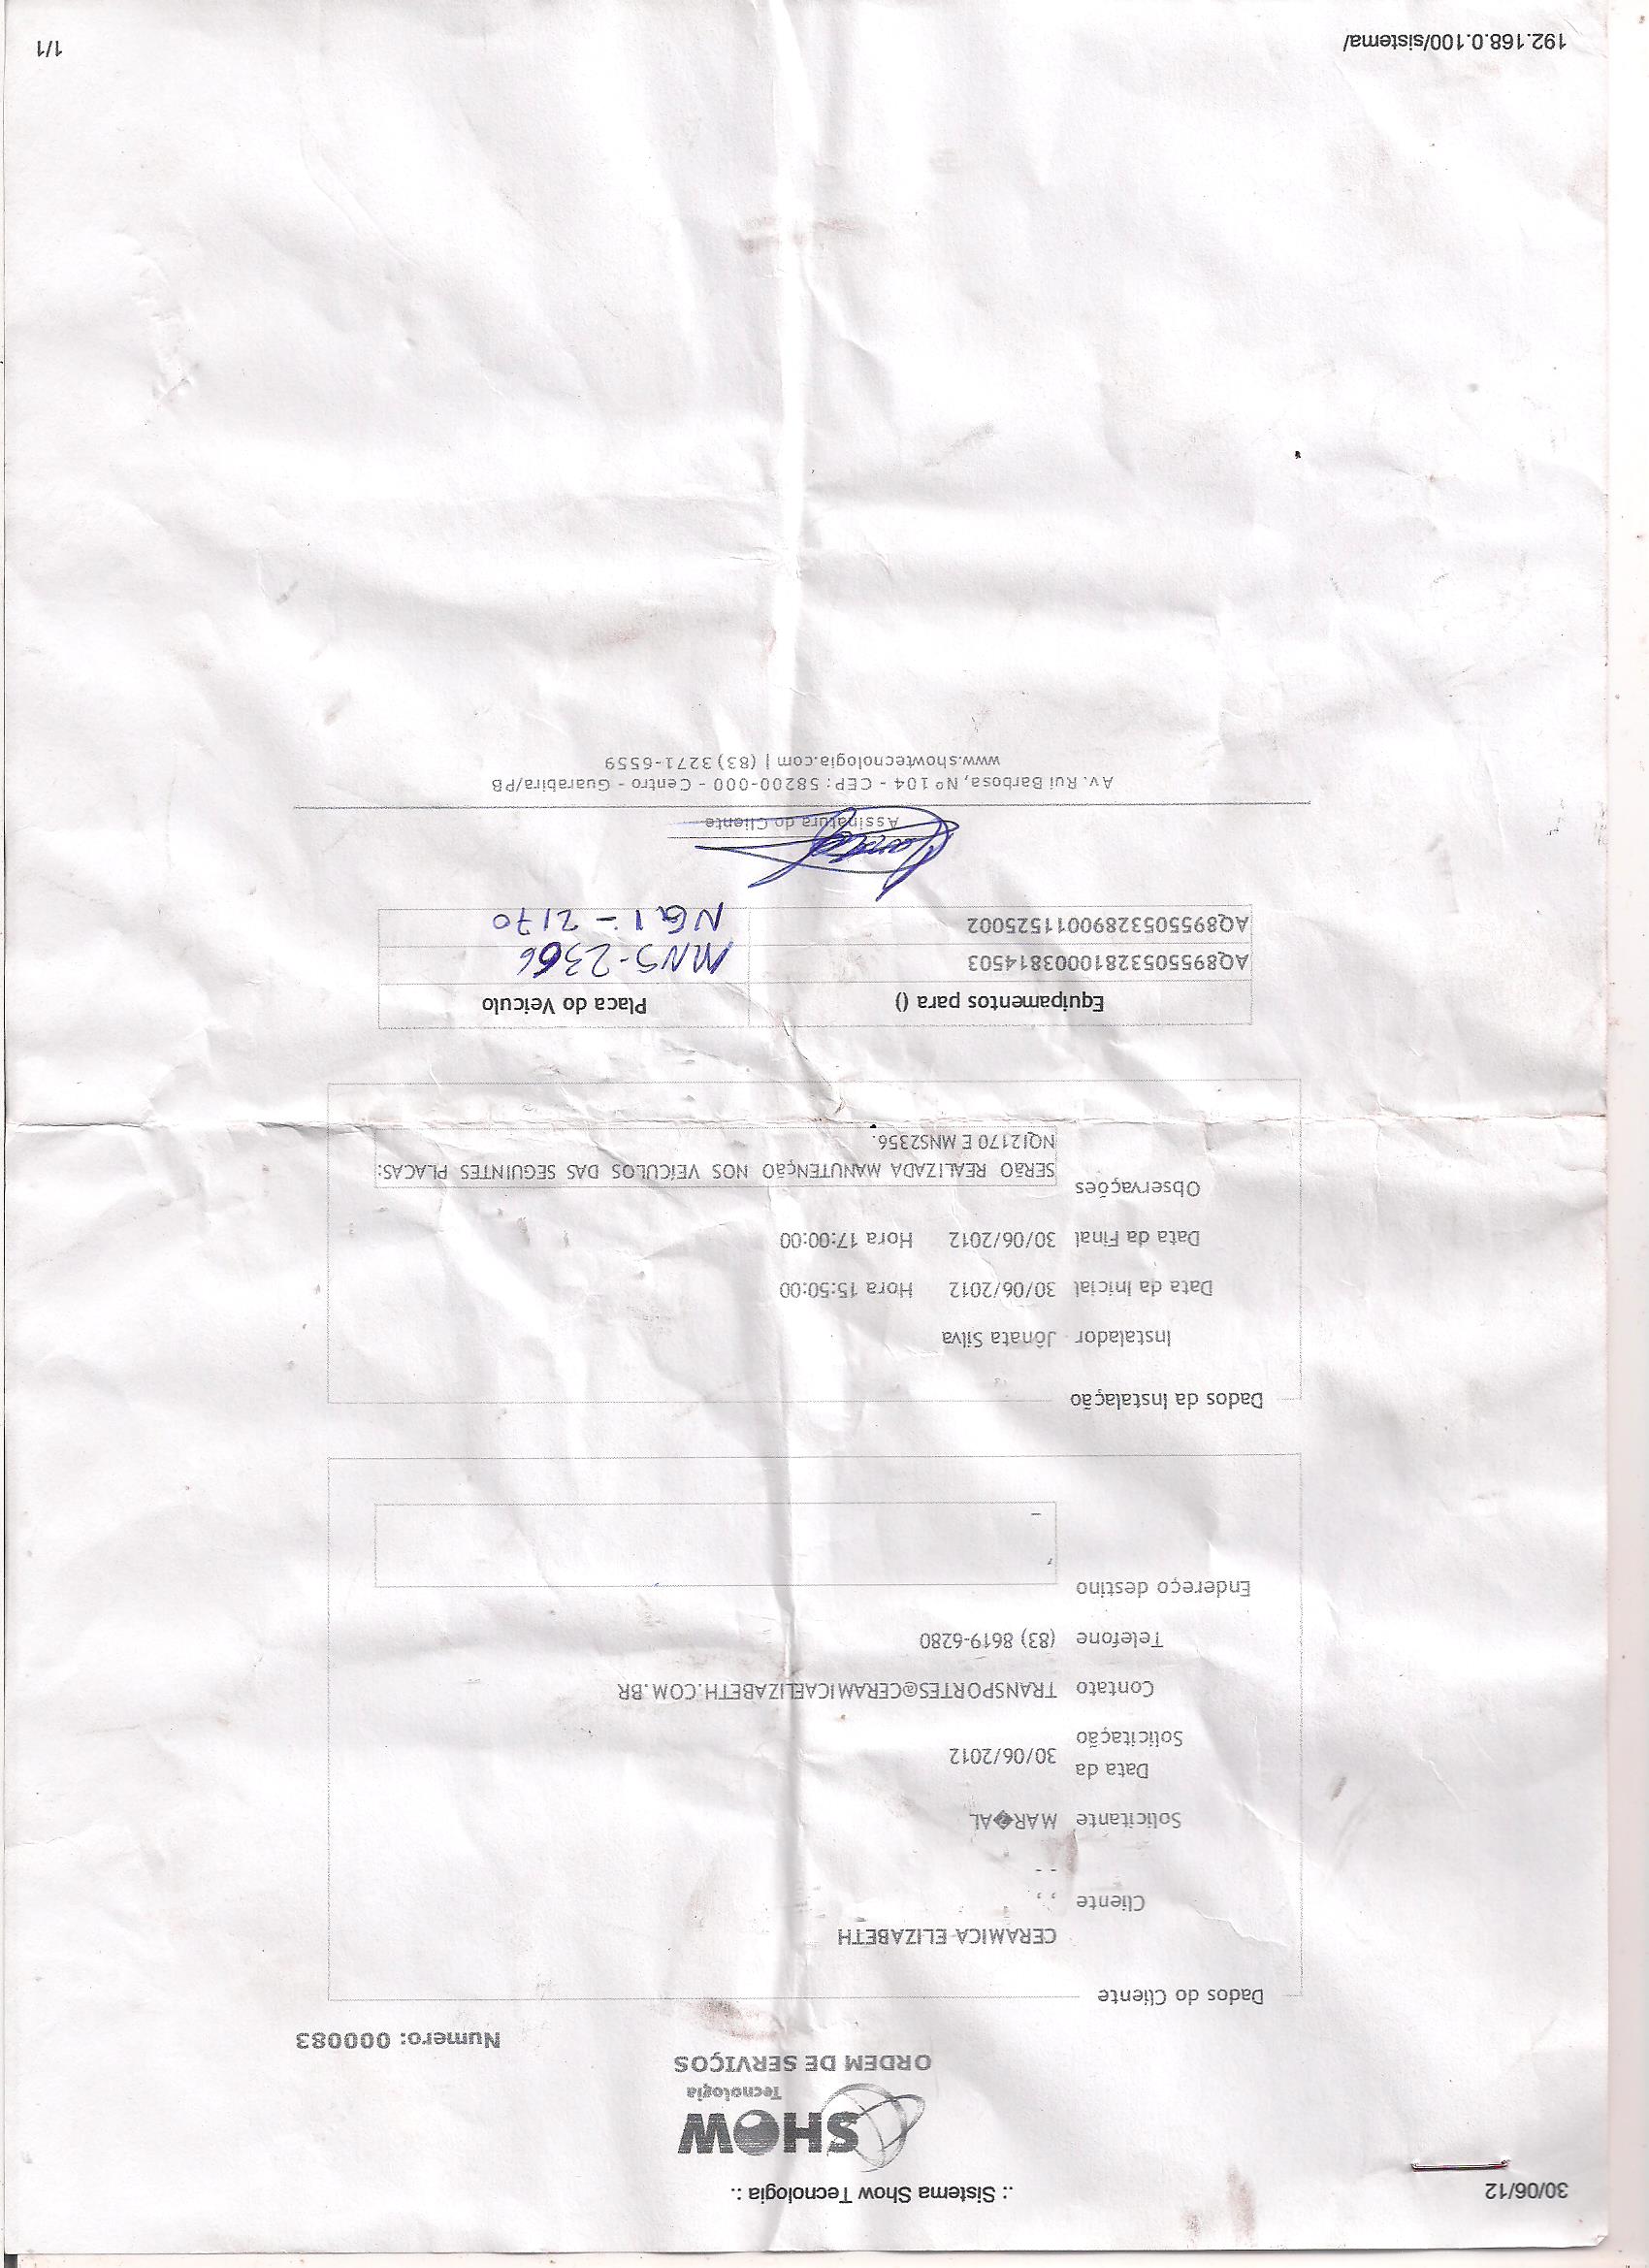 30/06/12
.: Sistema Show Tecnologia :.
SHOW
Tecnologia
ORDEM DE SERVIÇOS
Numero: 000083
Dados do Cliente
CERAMICA ELIZABETH
Cliente , ,
- -
Solicitante MAR�AL
Data da Solicitação 30/06/2012
Contato TRANSPORTES@CERAMICAELIZABETH.COM.BR
Telefone (83) 8619-6280
Endereço destino
,
-
Dados da Instalação
Instalador Jônata Silva
Data da Inicial 30/06/2012 Hora 15:50:00
Data da Final 30/06/2012 Hora 17:00:00
Observações
SERãO REALIZADA MANUTENÇãO NOS VEíCULOS DAS SEGUINTES PLACAS:
NQI2170 E MNS2356.
Equipamentos para () Placa do Veiculo
AQ89550532810003814503 MNS-2366
AQ89550532890011525002 NQI-2170
Assinatura do Cliente
Av. Rui Barbosa, Nº 104 - CEP: 58200-000 - Centro - Guarabira/PB
www.showtecnologia.com | (83) 3271-6559
192.168.0.100/sistema/ 1/1